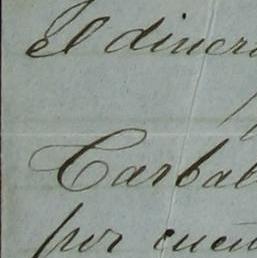 el diner
Carbal
por cuen